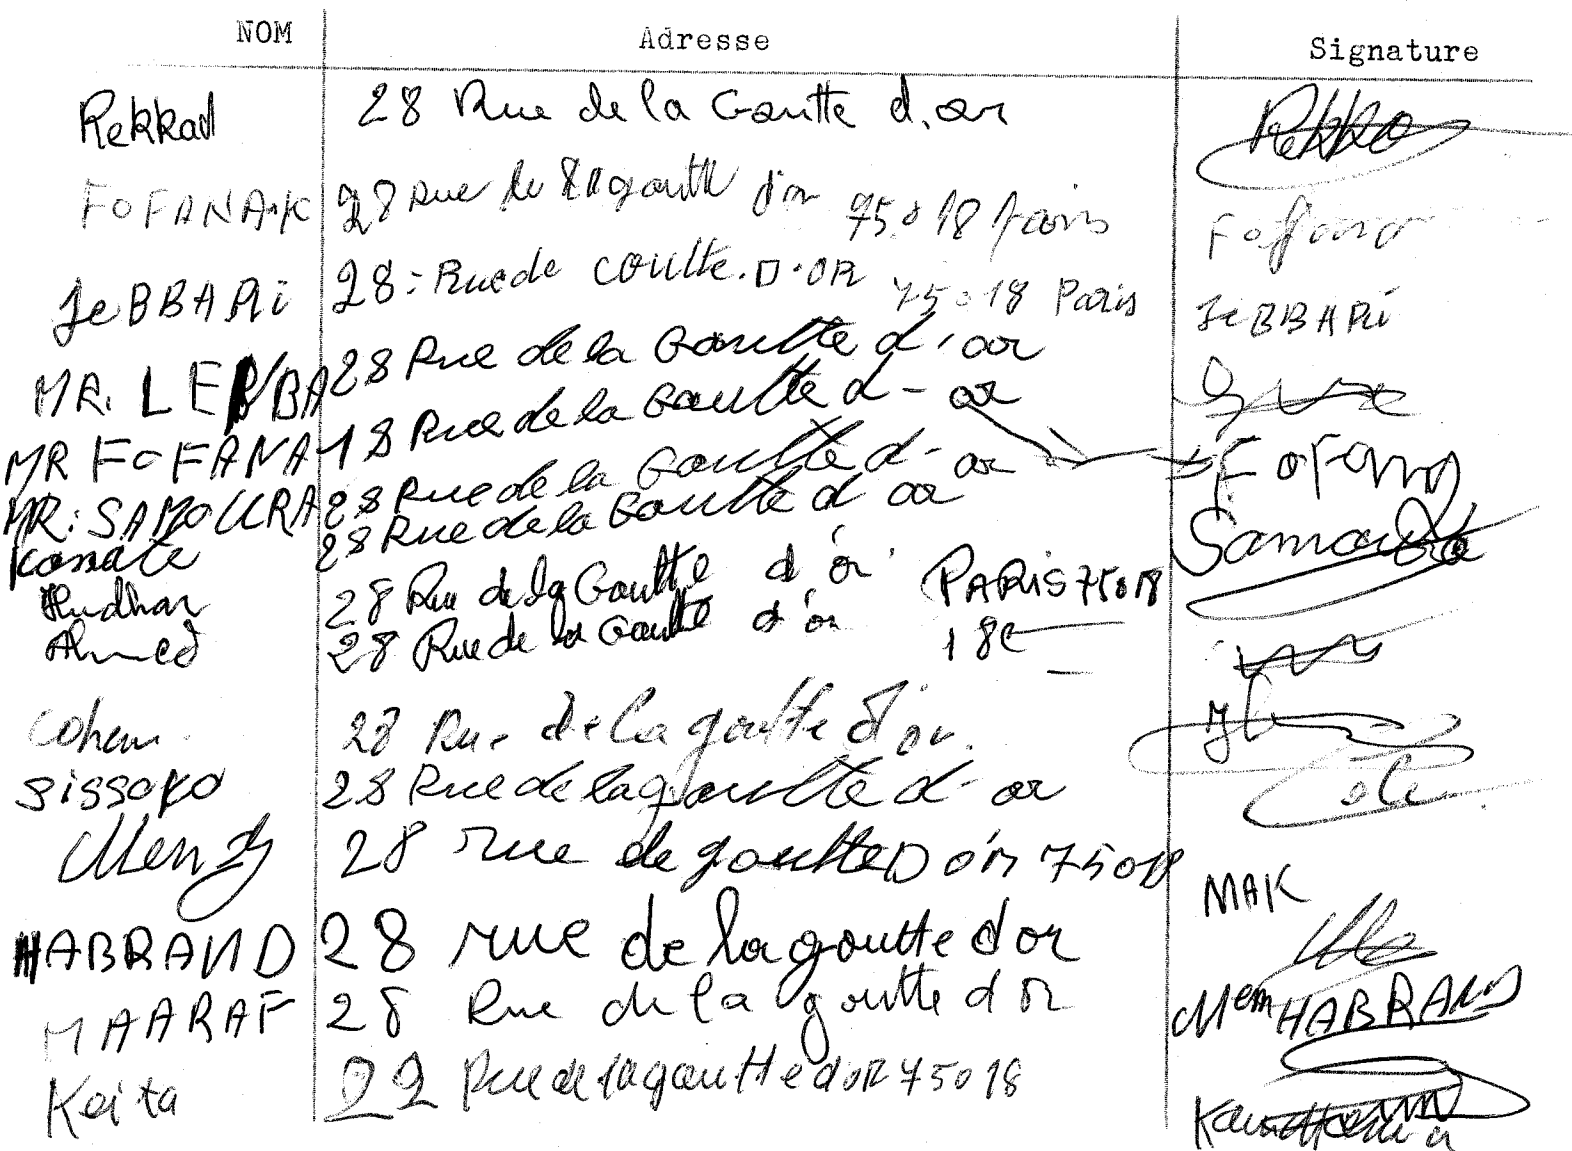 NOM Adresse Signature
Rekkad 28 Rue de la Goutte d'or Rekka
FOFANA.K 28 Rue de la goutte d'or 75018 Paris Fofana
JeBBARi 28: Rue de coutte.D.OR 75018 Paris JeBBARi
MR. LEMBA 28 Rue de la Goutte d'or
MR FOFANA 18 Rue de la Goutte d-or Fofana
MR: SAMOURA 28 Rue de la Goutte d-or Samoura
Konate 28 Rue de la Goutte d or
Hudhar 28 Rue de la Goutte d'or PARIS 75018
Ahmed 28 Rue de la Goutte d'or 18e
Cohen 28 Rue de la goutte d'or
Sissoko 28 Rue de la goutte d-or
Mendy 28 rue de goutte D'or 75018 MAK
HABRAND 28 rue de la goutte d'or
MAARAF 28 Rue de la goutte d'or Mem HABRAND
Keita 22 Rue de la goutte d OR 75018